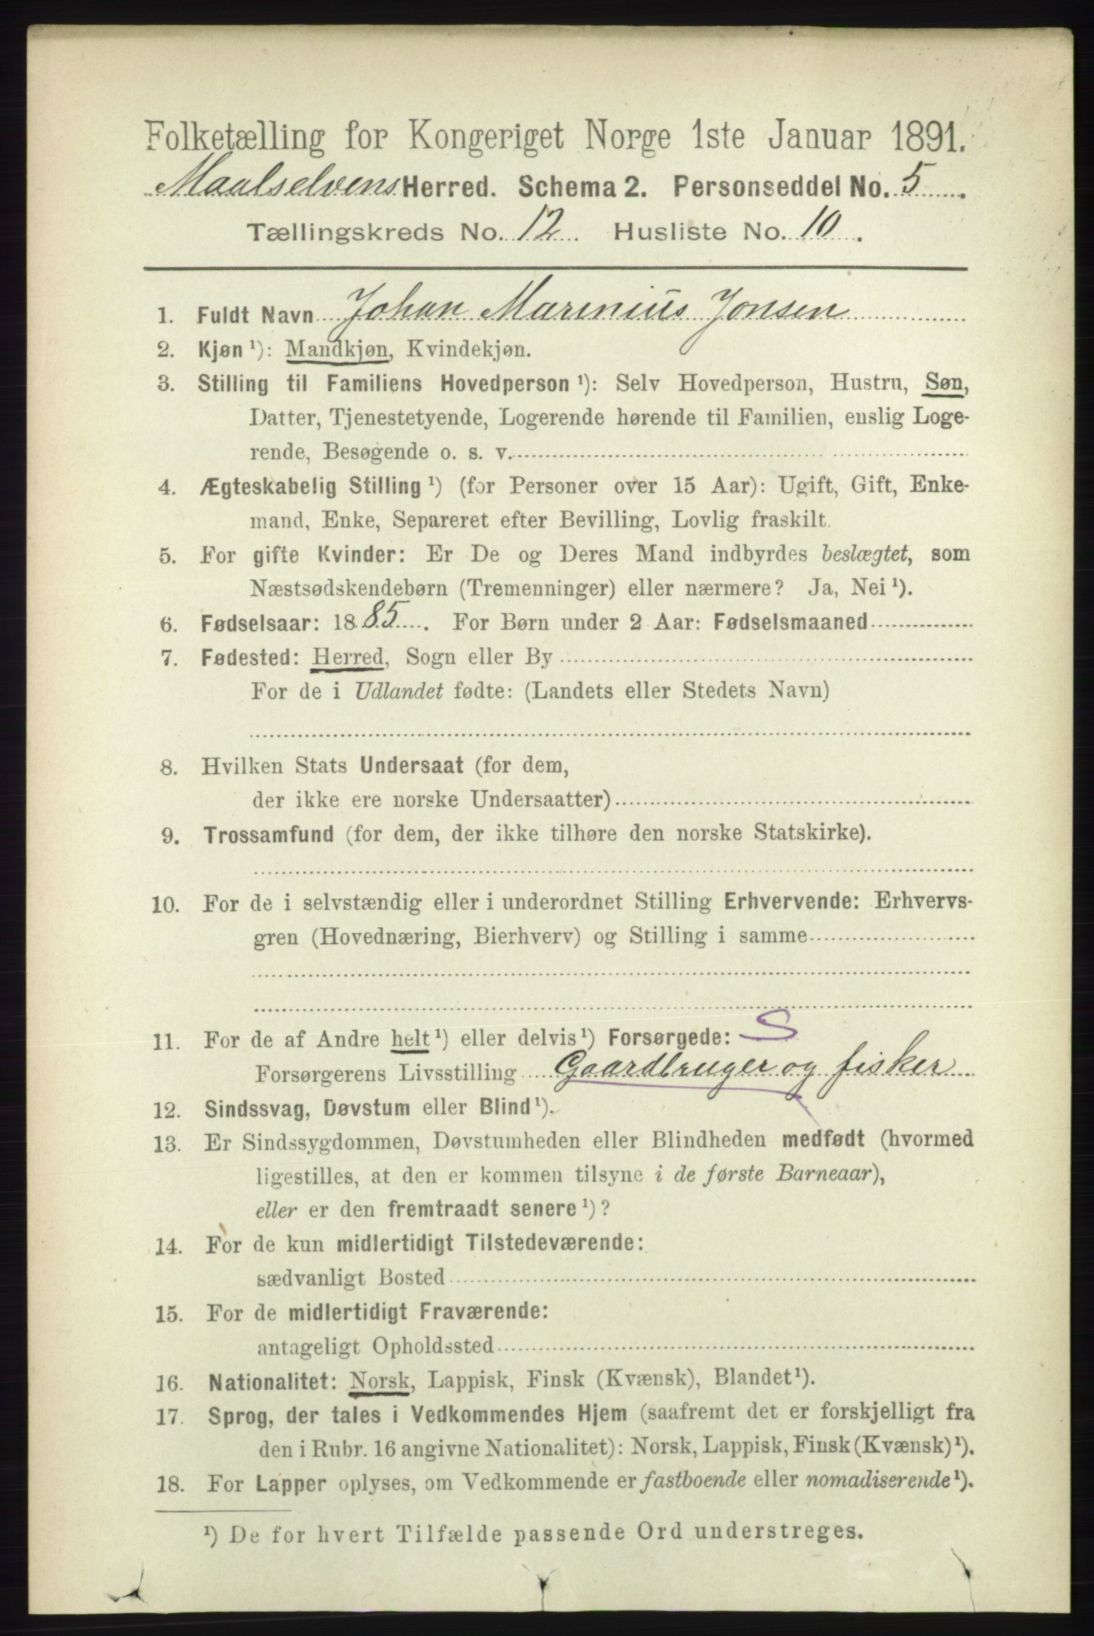 Folketælling for Kongeriget Norge 1ste Januar 1891.
Maalselvens Herred. Schema 2. Personseddel No. 5.
Tællingskreds No. 12. Husliste No. 10.
1. Fuldt Navn Johan Marinius Jonsen
2. Kjøn ¹): Mandkjøn, Kvindekjøn.
3. Stilling til Familiens Hovedperson ¹): Selv Hovedperson, Hustru, Søn,
Datter, Tjenestetyende, Logerende hørende til Familien, enslig Loge-
rende, Besøgende o. s. v.
4. Ægteskabelig Stilling ¹) (for Personer over 15 Aar): Ugift, Gift, Enke-
mand, Enke, Separeret efter Bevilling, Lovlig fraskilt.
5. For gifte Kvinder: Er De og Deres Mand indbyrdes beslægtet, som
Næstsødskendebørn (Tremenninger) eller nærmere? Ja, Nei ¹).
6. Fødselsaar: 1885. For Børn under 2 Aar: Fødselsmaaned
7. Fødested: Herred, Sogn eller By
For de i Udlandet fødte: (Landets eller Stedets Navn)
8. Hvilken Stats Undersaat (for dem,
der ikke ere norske Undersaatter)
9. Trossamfund (for dem, der ikke tilhøre den norske Statskirke).
10. For de i selvstændig eller i underordnet Stilling Erhvervende: Erhvervs-
gren (Hovednæring, Bierhverv) og Stilling i samme
11. For de af Andre helt ¹) eller delvis ¹) Forsørgede: S
Forsørgerens Livsstilling Gaardbruger og fisker
12. Sindssvag, Døvstum eller Blind ¹).
13. Er Sindssygdommen, Døvstumheden eller Blindheden medfødt (hvormed
ligestilles, at den er kommen tilsyne i de første Barneaar),
eller er den fremtraadt senere ¹)?
14. For de kun midlertidigt Tilstedeværende:
sædvanligt Bosted
15. For de midlertidigt Fraværende:
antageligt Opholdssted
16. Nationalitet: Norsk, Lappisk, Finsk (Kvænsk), Blandet ¹).
17. Sprog, der tales i Vedkommendes Hjem (saafremt det er forskjelligt fra
den i Rubr. 16 angivne Nationalitet): Norsk, Lappisk, Finsk (Kvænsk) ¹).
18. For Lapper oplyses, om Vedkommende er fastboende eller nomadiserende ¹).
¹) De for hvert Tilfælde passende Ord understreges.